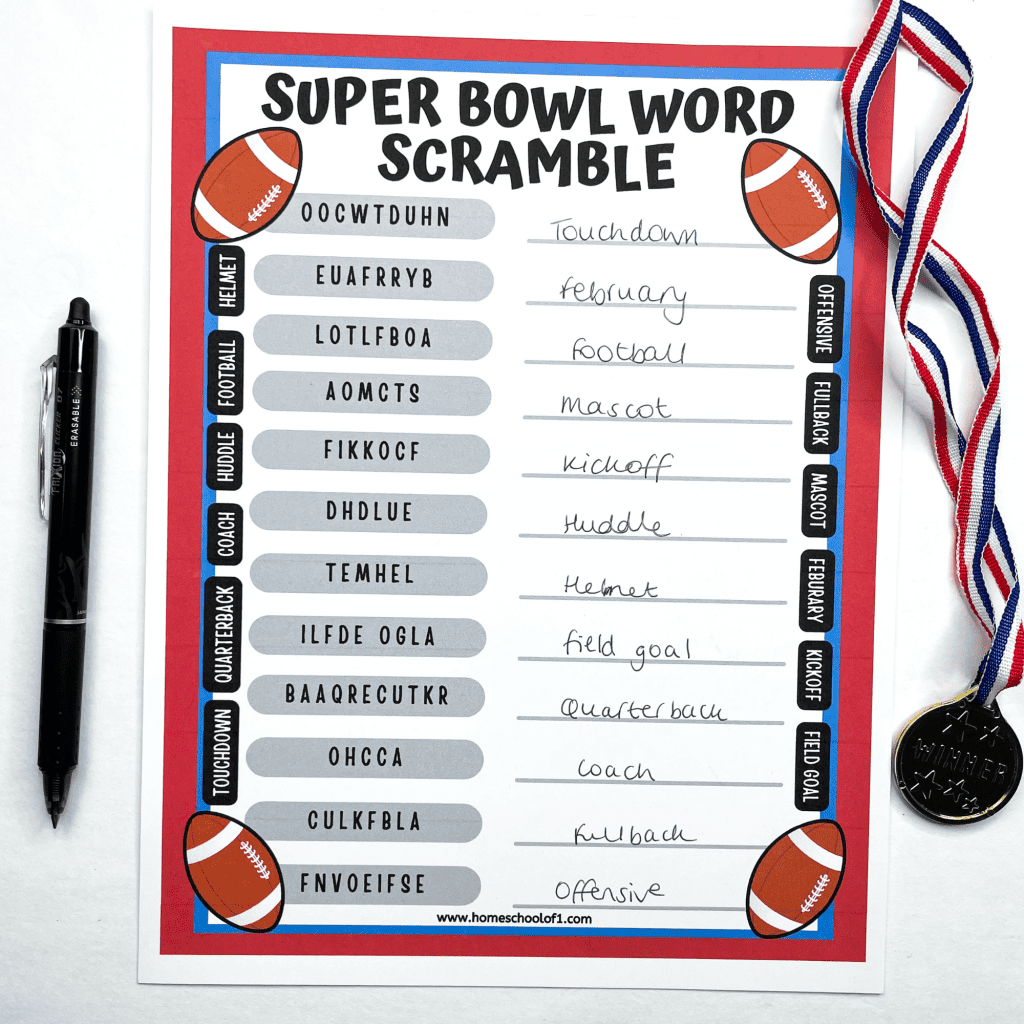 SUPER BOWL WORD
SCRAMBLE
OOCWTDUHN Touchdown
EUAFRRYB February
LOTLFBOA Football
AOMCTS Mascot
FIKKOCF Kickoff
DHDLUE Huddle
TEMHEL Helmet
ILFDE OGLA field goal
BAAQRECUTKR Quarterback
OHCCA coach
CULKFBLA Fullback
FNVOEIFSE Offensive
HELMET
FOOTBALL
HUDDLE
COACH
QUARTERBACK
TOUCHDOWN
OFFENSIVE
FULLBACK
MASCOT
FEBURARY
KICKOFF
FIELD GOAL
www.homeschoolof1.com
ERASABLE
WINNER